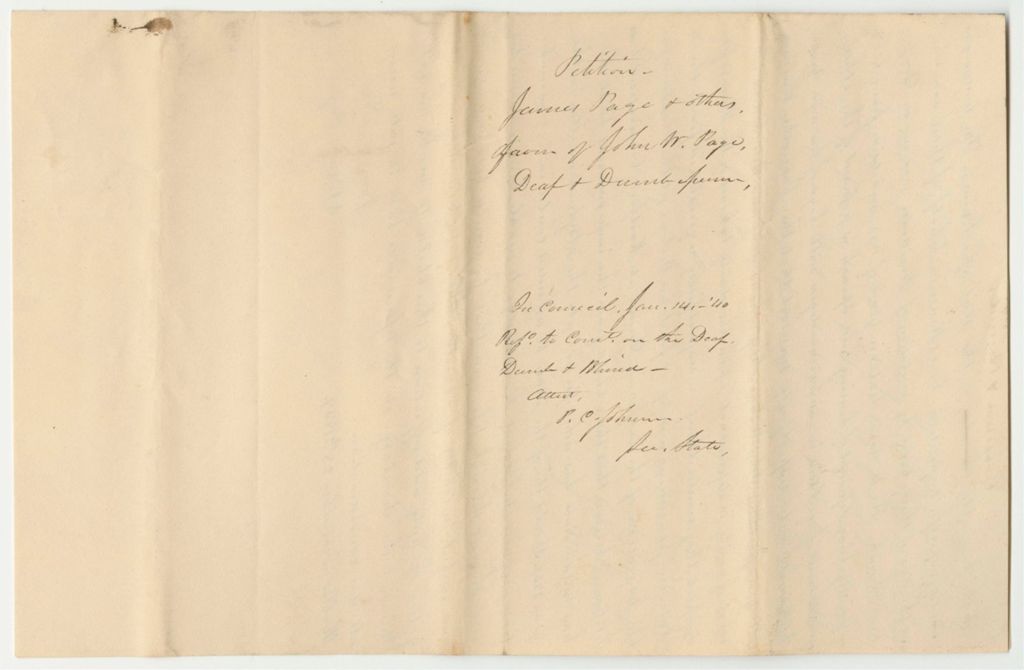 Petition -
James Page & others,
favor of John W. Page,
Deaf & Dumb person,
In Council, Jan. 14, - '40
Refd. to Come. on the Deaf.
Dumb & Blind -
Attest,
P. C. Johnson.
Sec. State,